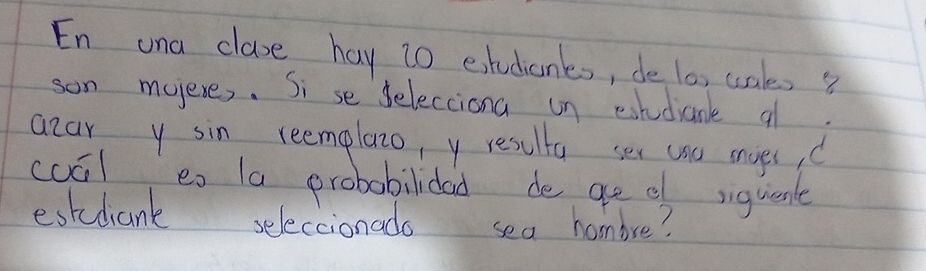 En una clase hay 20 estudiantes, de los cuales 8
son mujeres. Si se selecciona un estudiante al
azar y sin reemplazo, y resulta ser una mujer, ¿
cuál es la probabilidad de que el siguiente
estudiante seleccionado sea hombre?